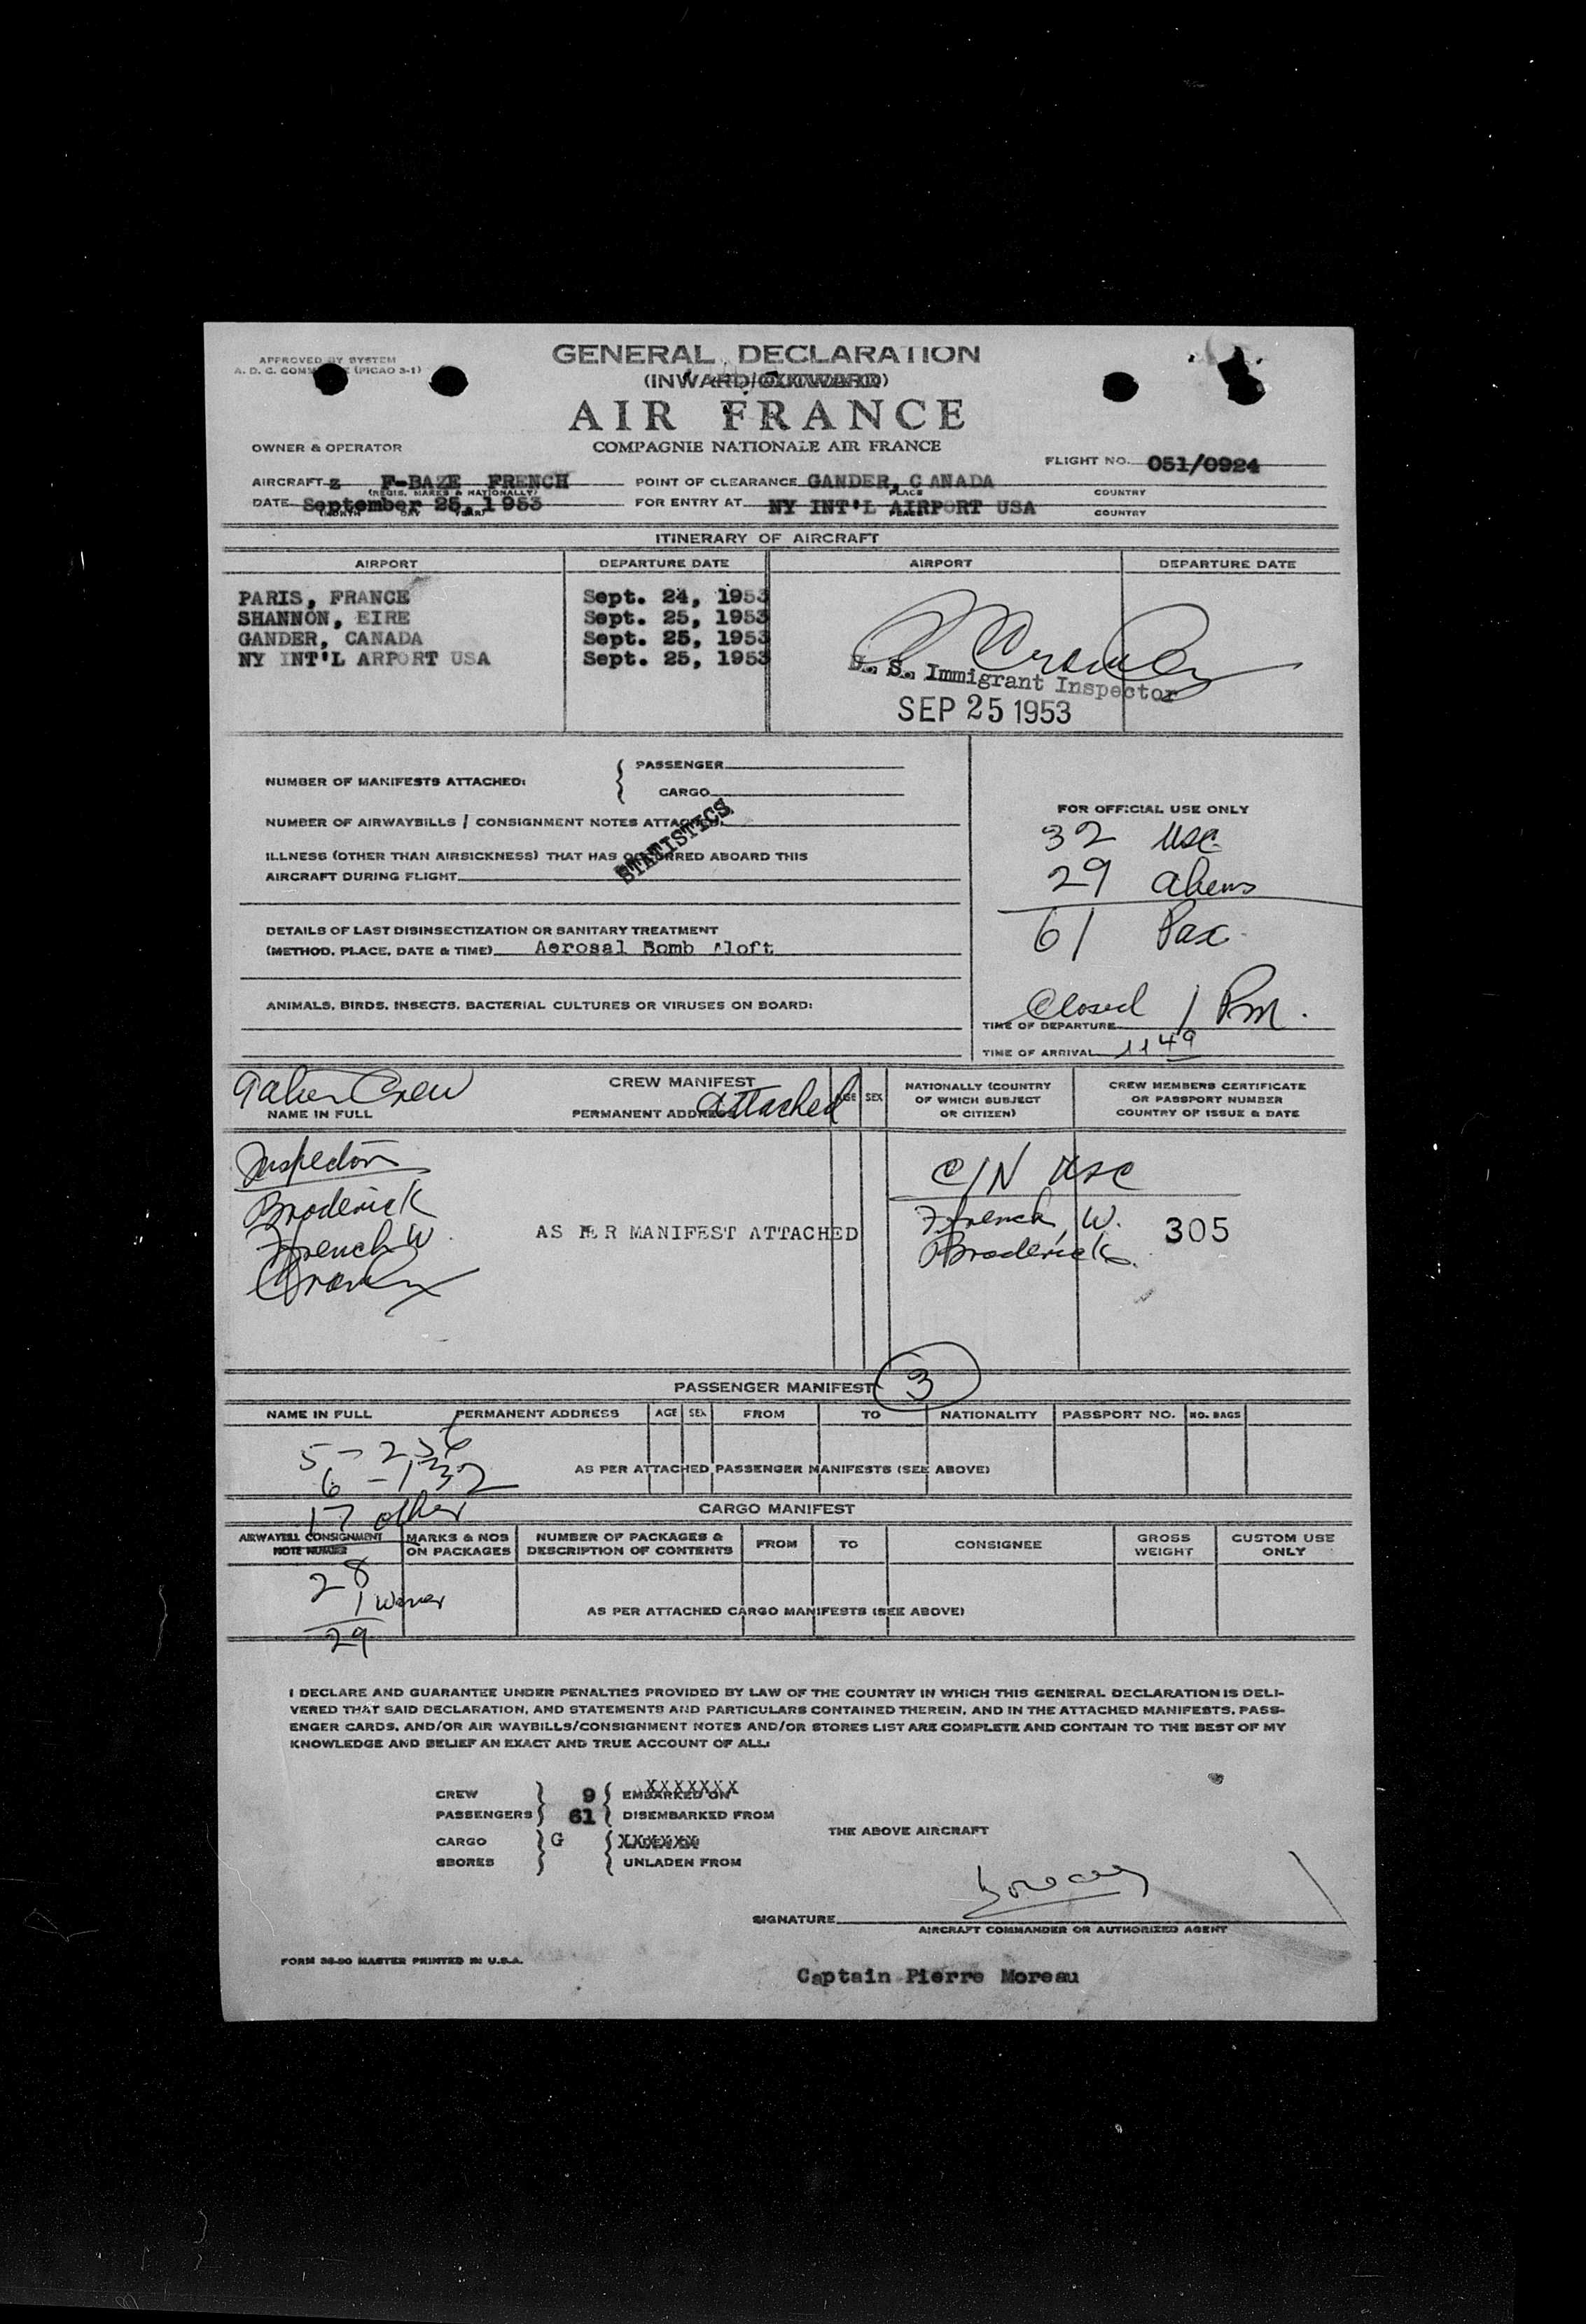 APPROVED BY SYSTEM
A. D. C. COMM (PICAO 3-1)
GENERAL DECLARATION
(INWARD/OUTWARD)
AIR FRANCE
COMPAGNIE NATIONALE AIR FRANCE
OWNER & OPERATOR
FLIGHT NO. 051/0924
AIRCRAFT z F-BAZE FRENCH POINT OF CLEARANCE GANDER, C ANADA
(REGIS. MARKS & NATIONALLY) PLACE COUNTRY
DATE September 25, 1953 FOR ENTRY AT NY INT'L AIRPORT USA
(MONTH DAY YEAR) PLACE COUNTRY
ITINERARY OF AIRCRAFT
AIRPORT DEPARTURE DATE AIRPORT DEPARTURE DATE
PARIS, FRANCE Sept. 24, 1953
SHANNON, EIRE Sept. 25, 1953
GANDER, CANADA Sept. 25, 1953
NY INT'L ARPORT USA Sept. 25, 1953
U. S. Immigrant Inspector
SEP 25 1953
NUMBER OF MANIFESTS ATTACHED: { PASSENGER
CARGO
NUMBER OF AIRWAYBILLS / CONSIGNMENT NOTES ATTACHED:
STATISTICS
ILLNESS (OTHER THAN AIRSICKNESS) THAT HAS OCCURRED ABOARD THIS
AIRCRAFT DURING FLIGHT
DETAILS OF LAST DISINSECTIZATION OR SANITARY TREATMENT
(METHOD, PLACE, DATE & TIME) Aerosal Bomb Aloft
ANIMALS, BIRDS, INSECTS, BACTERIAL CULTURES OR VIRUSES ON BOARD:
FOR OFFICIAL USE ONLY
32 USC
29 aliens
61 Pax
Closed 1 Pm.
TIME OF DEPARTURE
TIME OF ARRIVAL 1149
Crew attached
CREW MANIFEST
NAME IN FULL PERMANENT ADDRESS AGE SEX NATIONALLY (COUNTRY OF WHICH SUBJECT OR CITIZEN) CREW MEMBERS CERTIFICATE OR PASSPORT NUMBER COUNTRY OF ISSUE & DATE
Inspectors
Broderick
French W.
AS PER MANIFEST ATTACHED
C/N USC
French, W.
Broderick
305
PASSENGER MANIFEST 3
NAME IN FULL PERMANENT ADDRESS AGE SEX FROM TO NATIONALITY PASSPORT NO. NO. BAGS
5 - 236
6 - 132
AS PER ATTACHED PASSENGER MANIFESTS (SEE ABOVE)
17 other
CARGO MANIFEST
AIRWAYBILL CONSIGNMENT NOTE NUMBER MARKS & NOS ON PACKAGES NUMBER OF PACKAGES & DESCRIPTION OF CONTENTS FROM TO CONSIGNEE GROSS WEIGHT CUSTOM USE ONLY
28
1
29
AS PER ATTACHED CARGO MANIFESTS (SEE ABOVE)
I DECLARE AND GUARANTEE UNDER PENALTIES PROVIDED BY LAW OF THE COUNTRY IN WHICH THIS GENERAL DECLARATION IS DELI-
VERED THAT SAID DECLARATION, AND STATEMENTS AND PARTICULARS CONTAINED THEREIN, AND IN THE ATTACHED MANIFESTS, PASS-
ENGER CARDS, AND/OR AIR WAYBILLS/CONSIGNMENT NOTES AND/OR STORES LIST ARE COMPLETE AND CONTAIN TO THE BEST OF MY
KNOWLEDGE AND BELIEF AN EXACT AND TRUE ACCOUNT OF ALL:
CREW 9 EMBARKED ON
PASSENGERS 61 DISEMBARKED FROM
CARGO G XXXXXXX
SBORES UNLADEN FROM
THE ABOVE AIRCRAFT
SIGNATURE
AIRCRAFT COMMANDER OR AUTHORIZED AGENT
FORM 36-90 MASTER PRINTED IN U.S.A.
Captain Pierre Moreau